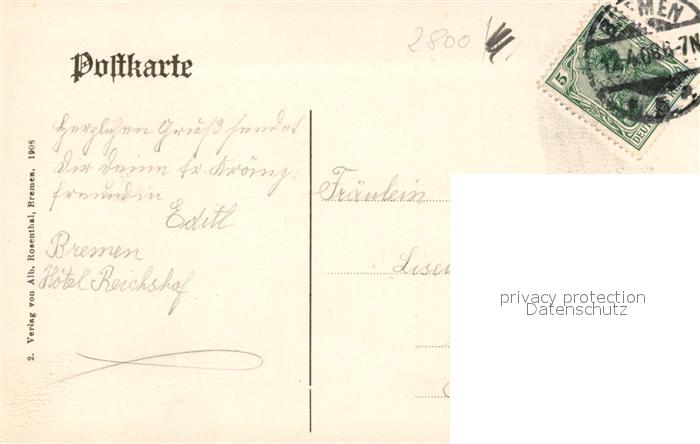 2800
Postkarte
BREMEN
12.4.08.6-7N
5
DEUTSCHES
Herzlichen Gruß sendet
Dir deine tr. Kränz-
freundin
Edith
Bremen
Hôtel Reichshof
Fräulein
Lisel
privacy protection
Datenschutz
2. Verlag von Alb. Rosenthal, Bremen. 1908